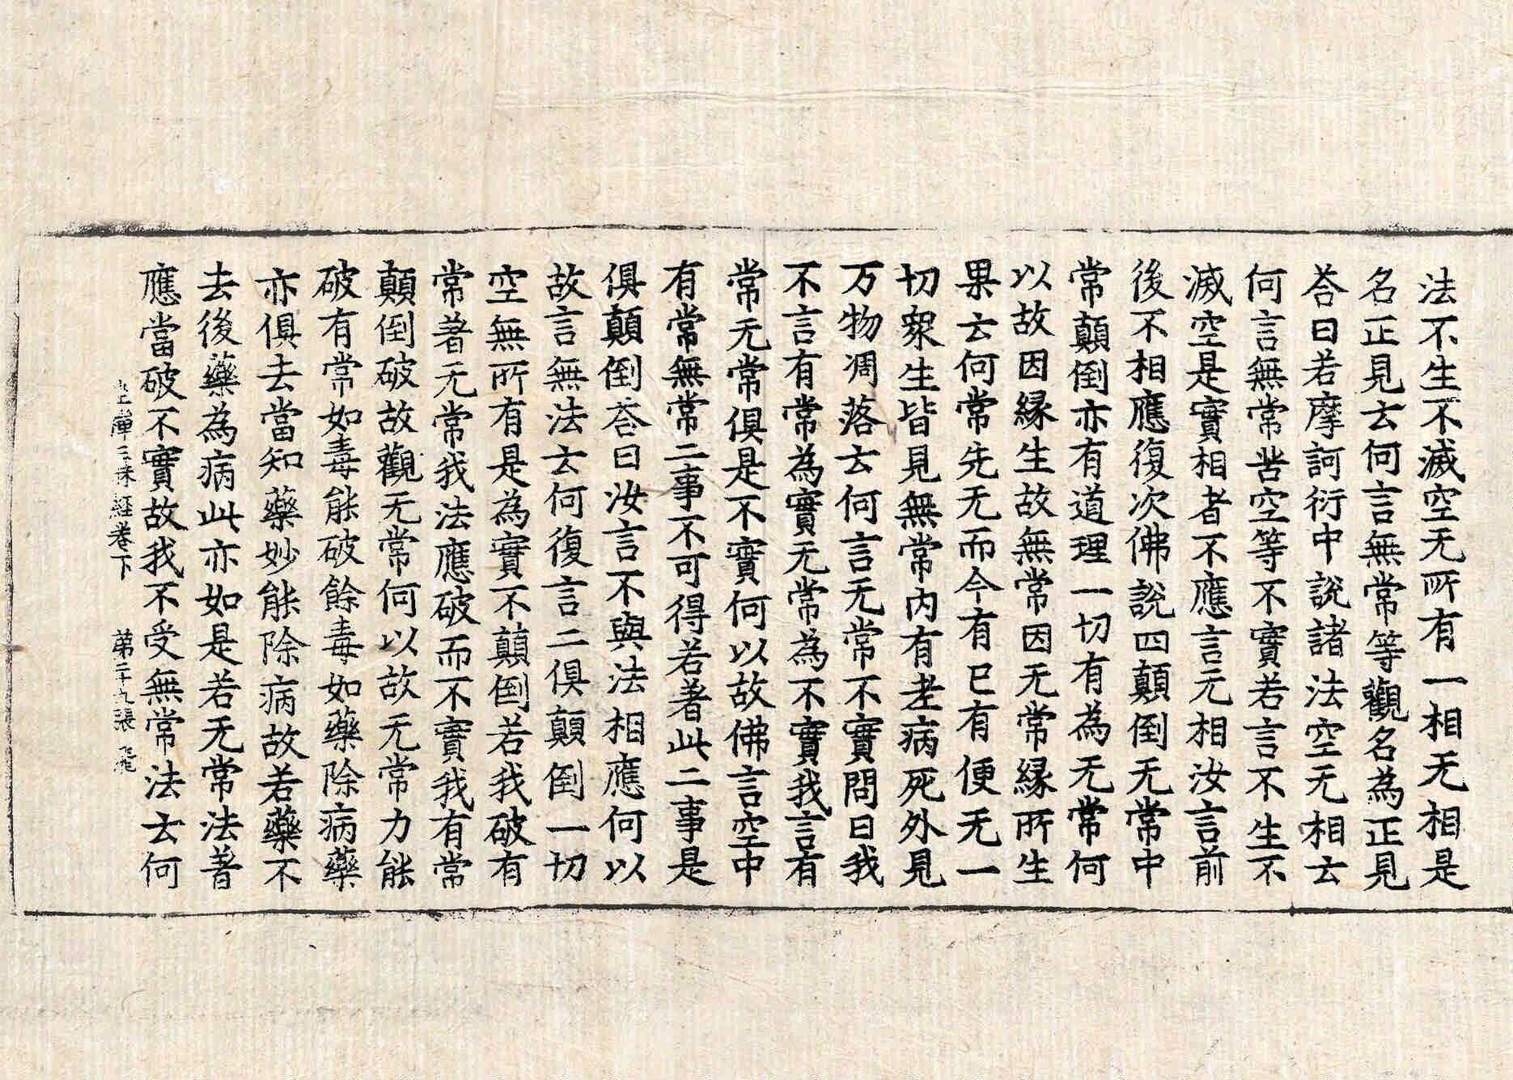 法不生不滅空无所有一相无相是
名正見去何言無常等觀名為正見
荅曰若摩訶衍中說諸法空无相去
何言無常苦空等不實若言不生不
滅空是實相者不應言无相汝言前
後不相應復次佛說四顛倒无常中
常顛倒亦有道理一切有為无常何
以故因縁生故無常因无常縁所生
果去何常先无而今有已有便无一
切衆生皆見無常内有老病死外見
万物凋落去何言无常不實問曰我
不言有常為實无常為不實我言有
常无常俱是不實何以故佛言空中
有常無常二事不可得若著此二事是
俱顛倒荅曰汝言不與法相應何以
故言無法去何復言二俱顛倒一切
空無所有是為實不顛倒若我破有
常著无常我法應破而不實我有常
顛倒破故觀无常何以故无常力能
破有常如毒能破餘毒如藥除病藥
亦俱去當知藥妙能除病故若藥不
去後藥為病此亦如是若无常法著
應當破不實故我不受無常法去何
坐禪三昧經卷下 第二十九張